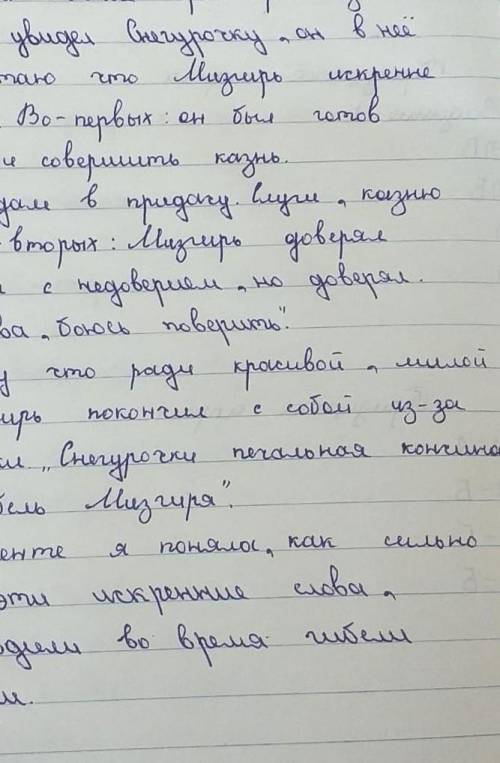 увидел Снегурочку, он в неё
таю что Мизгирь искренне
Во-первых: он был готов
и совершить казнь.
дам в придачу. Слуги, казню
вторых: Мизгирь доверял
с недоверием, но доверял.
ва „боюсь поверить".
у что ради красивой, милой
ирь покончил с собой из-за
ал „Снегурочки печальная кончина
бель Мизгиря".
енте я поняла, как сильно
эти искренние слова,
одили во время гибели
м.